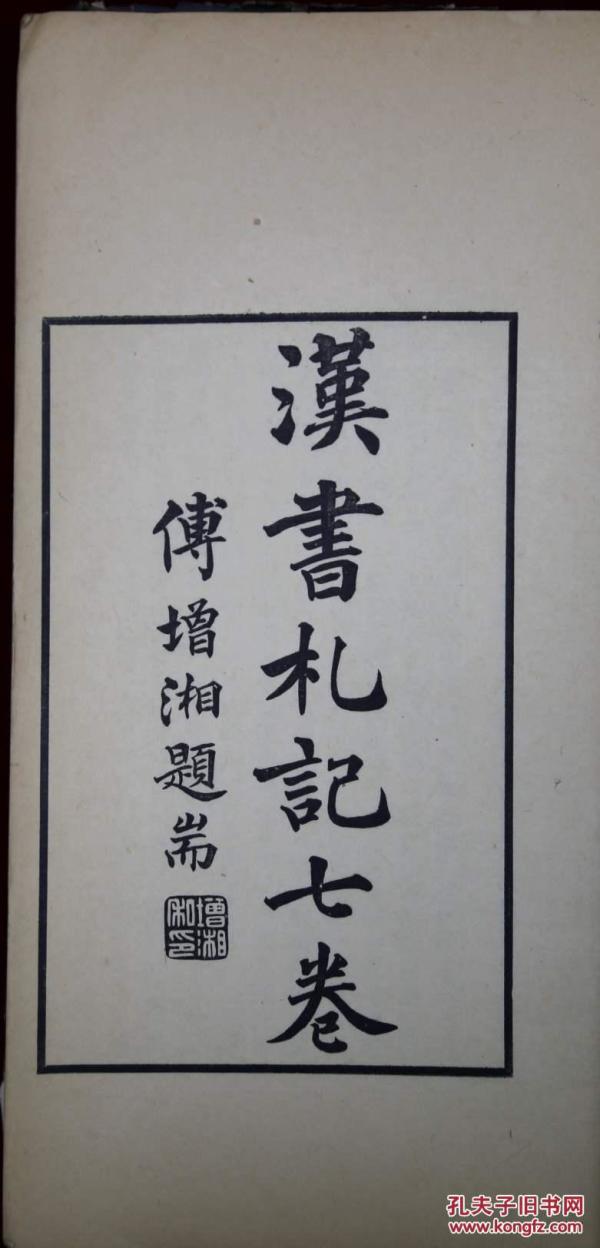 漢書札記七卷
傅增湘題耑
增湘私印
孔夫子旧书网
www.kongfz.com